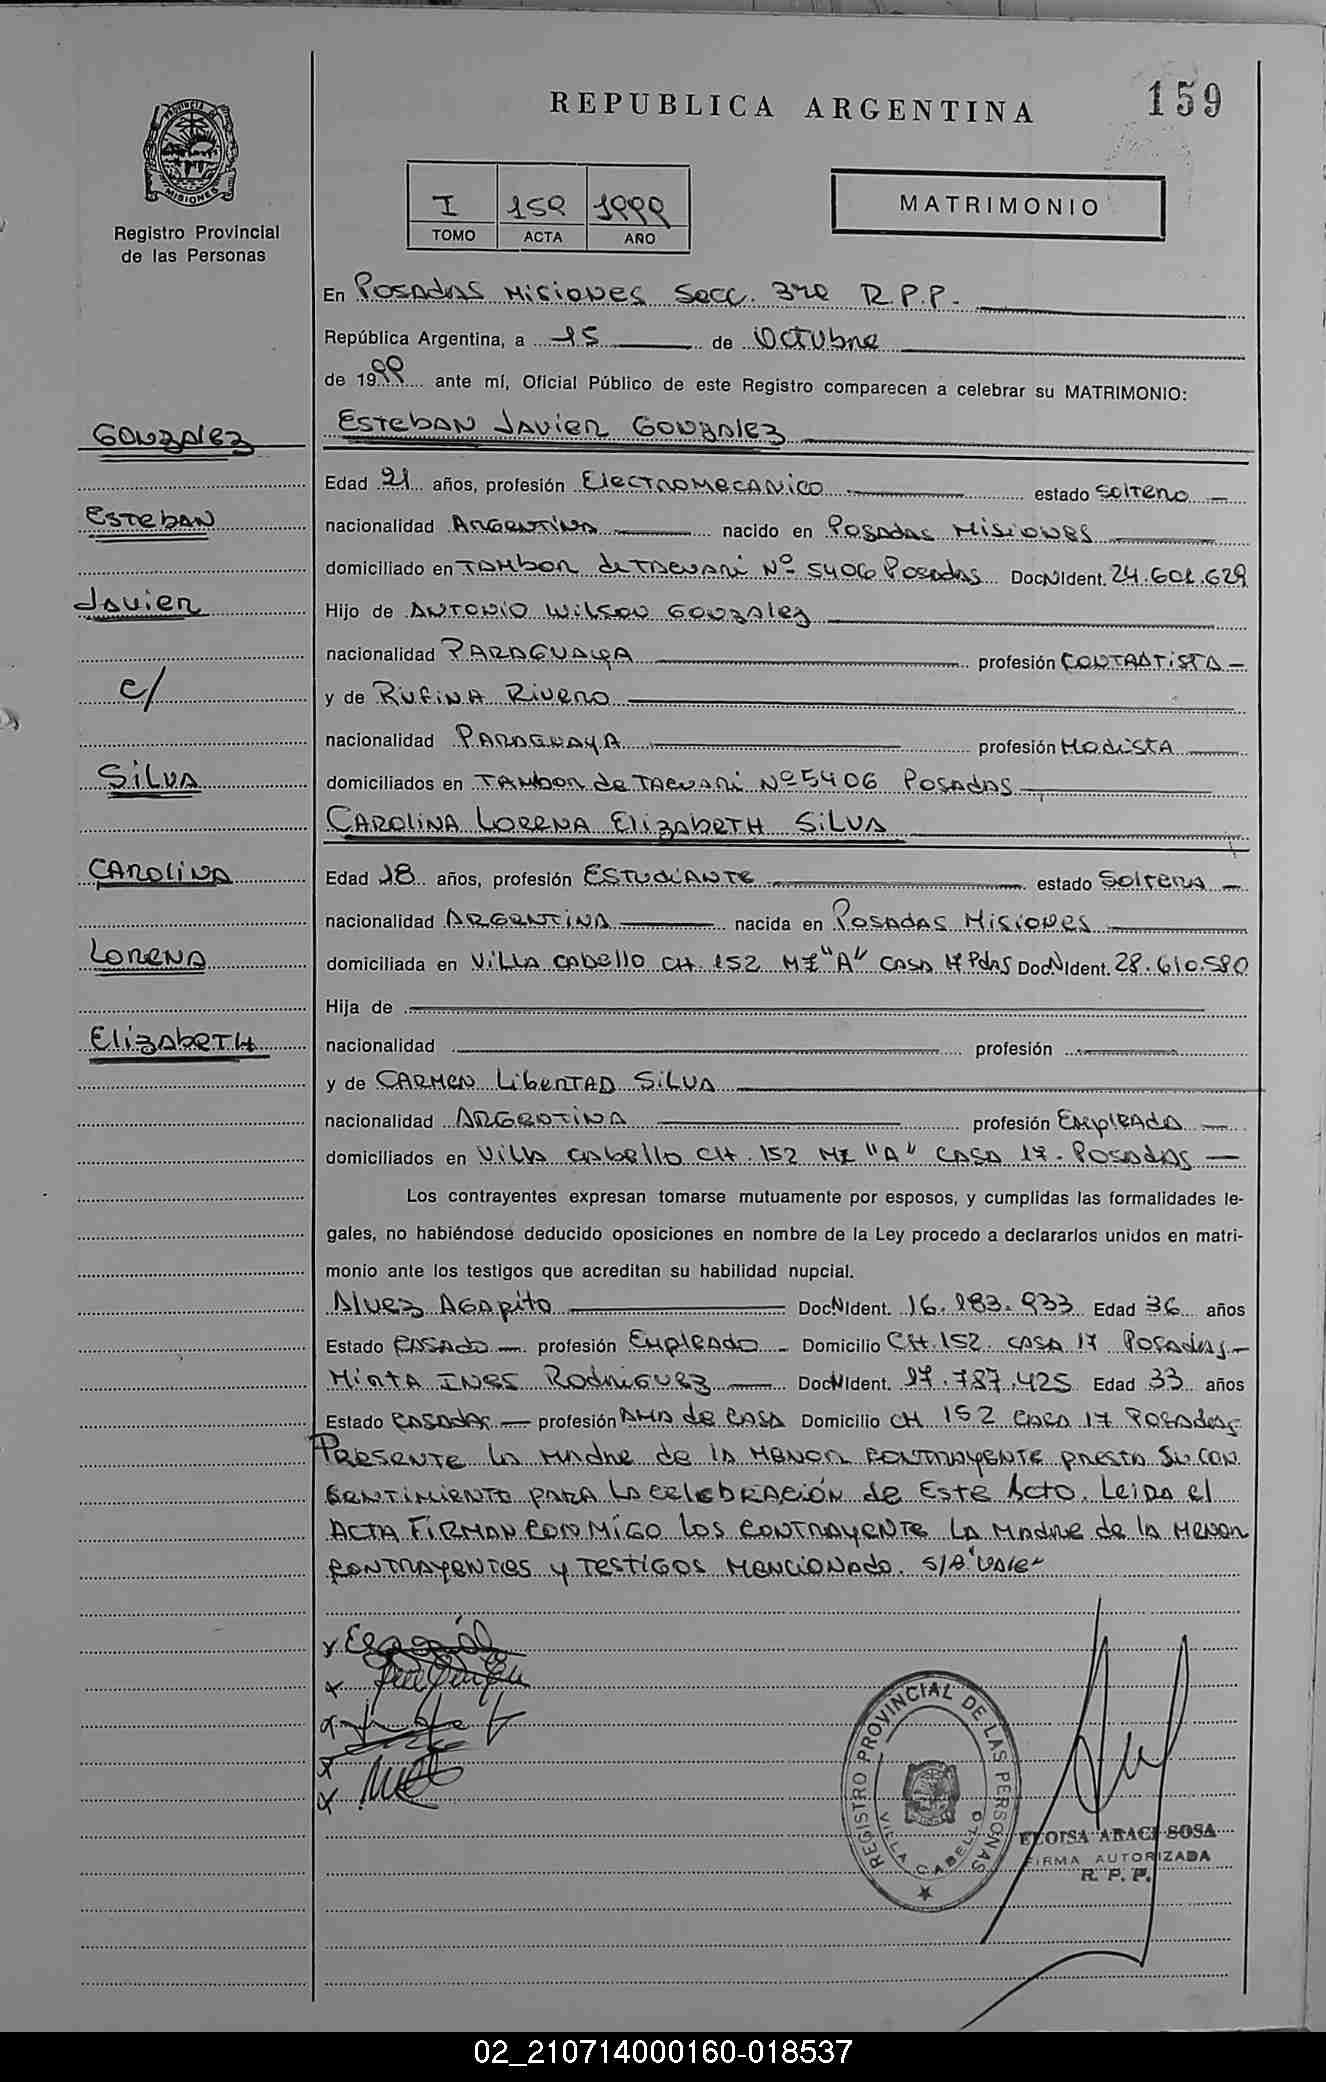 REPUBLICA ARGENTINA
159
PROVINCIA
MISIONES
Registro Provincial
de las Personas
I 159 1999
TOMO ACTA AÑO
MATRIMONIO
En Posadas Misiones Secc. 3ra R.P.P.
República Argentina, a 15 de Octubre
de 1999 ante mí, Oficial Público de este Registro comparecen a celebrar su MATRIMONIO:
Gonzalez
Esteban Javier Gonzalez
Edad 21 años, profesión Electromecanico estado Soltero
Esteban
nacionalidad Argentina nacido en Posadas Misiones
domiciliado en Tambor de Tacuari Nº 5406 Posadas DocNIdent. 24.601.629
Javier
Hijo de Antonio Wilson Gonzalez
nacionalidad Paraguaya profesión Contratista
c/
y de Rufina Rivero
nacionalidad Paraguaya profesión Modista
Silva
domiciliados en Tambor de Tacuari Nº 5406 Posadas
Carolina Lorena Elizabeth Silva
Carolina
Edad 18 años, profesión Estudiante estado Soltera
nacionalidad Argentina nacida en Posadas Misiones
Lorena
domiciliada en Villa Cabello CH 152 MZ "A" Casa 17 Pdas DocNIdent. 28.610.580
Hija de
Elizabeth
nacionalidad profesión
y de Carmen Libertad Silva
nacionalidad Argentina profesión Empleada
domiciliados en Villa Cabello CH. 152 MZ "A" Casa 17. Posadas
Los contrayentes expresan tomarse mutuamente por esposos, y cumplidas las formalidades le-
gales, no habiéndose deducido oposiciones en nombre de la Ley procedo a declararlos unidos en matri-
monio ante los testigos que acreditan su habilidad nupcial.
Alvez Agapito DocNIdent. 16.183.933 Edad 36 años
Estado Casado profesión Empleado Domicilio CH.152. Casa 17 Posadas
Mirta Ines Rodriguez DocNIdent. 17.787.425 Edad 33 años
Estado Casada profesión Ama de Casa Domicilio CH 152 Casa 17 Posadas
Presente la Madre de la Menor contrayente presta su con
sentimiento para la celebración de Este Acto. Leida el
Acta Firman conmigo los contrayente la Madre de la Menor
contrayentes y Testigos Mencionado. S/B "Vale"
REGISTRO PROVINCIAL DE LAS PERSONAS
VILLA CABELLO
ELOISA ARACI SOSA
FIRMA AUTORIZADA
R. P. P.
02_210714000160-018537